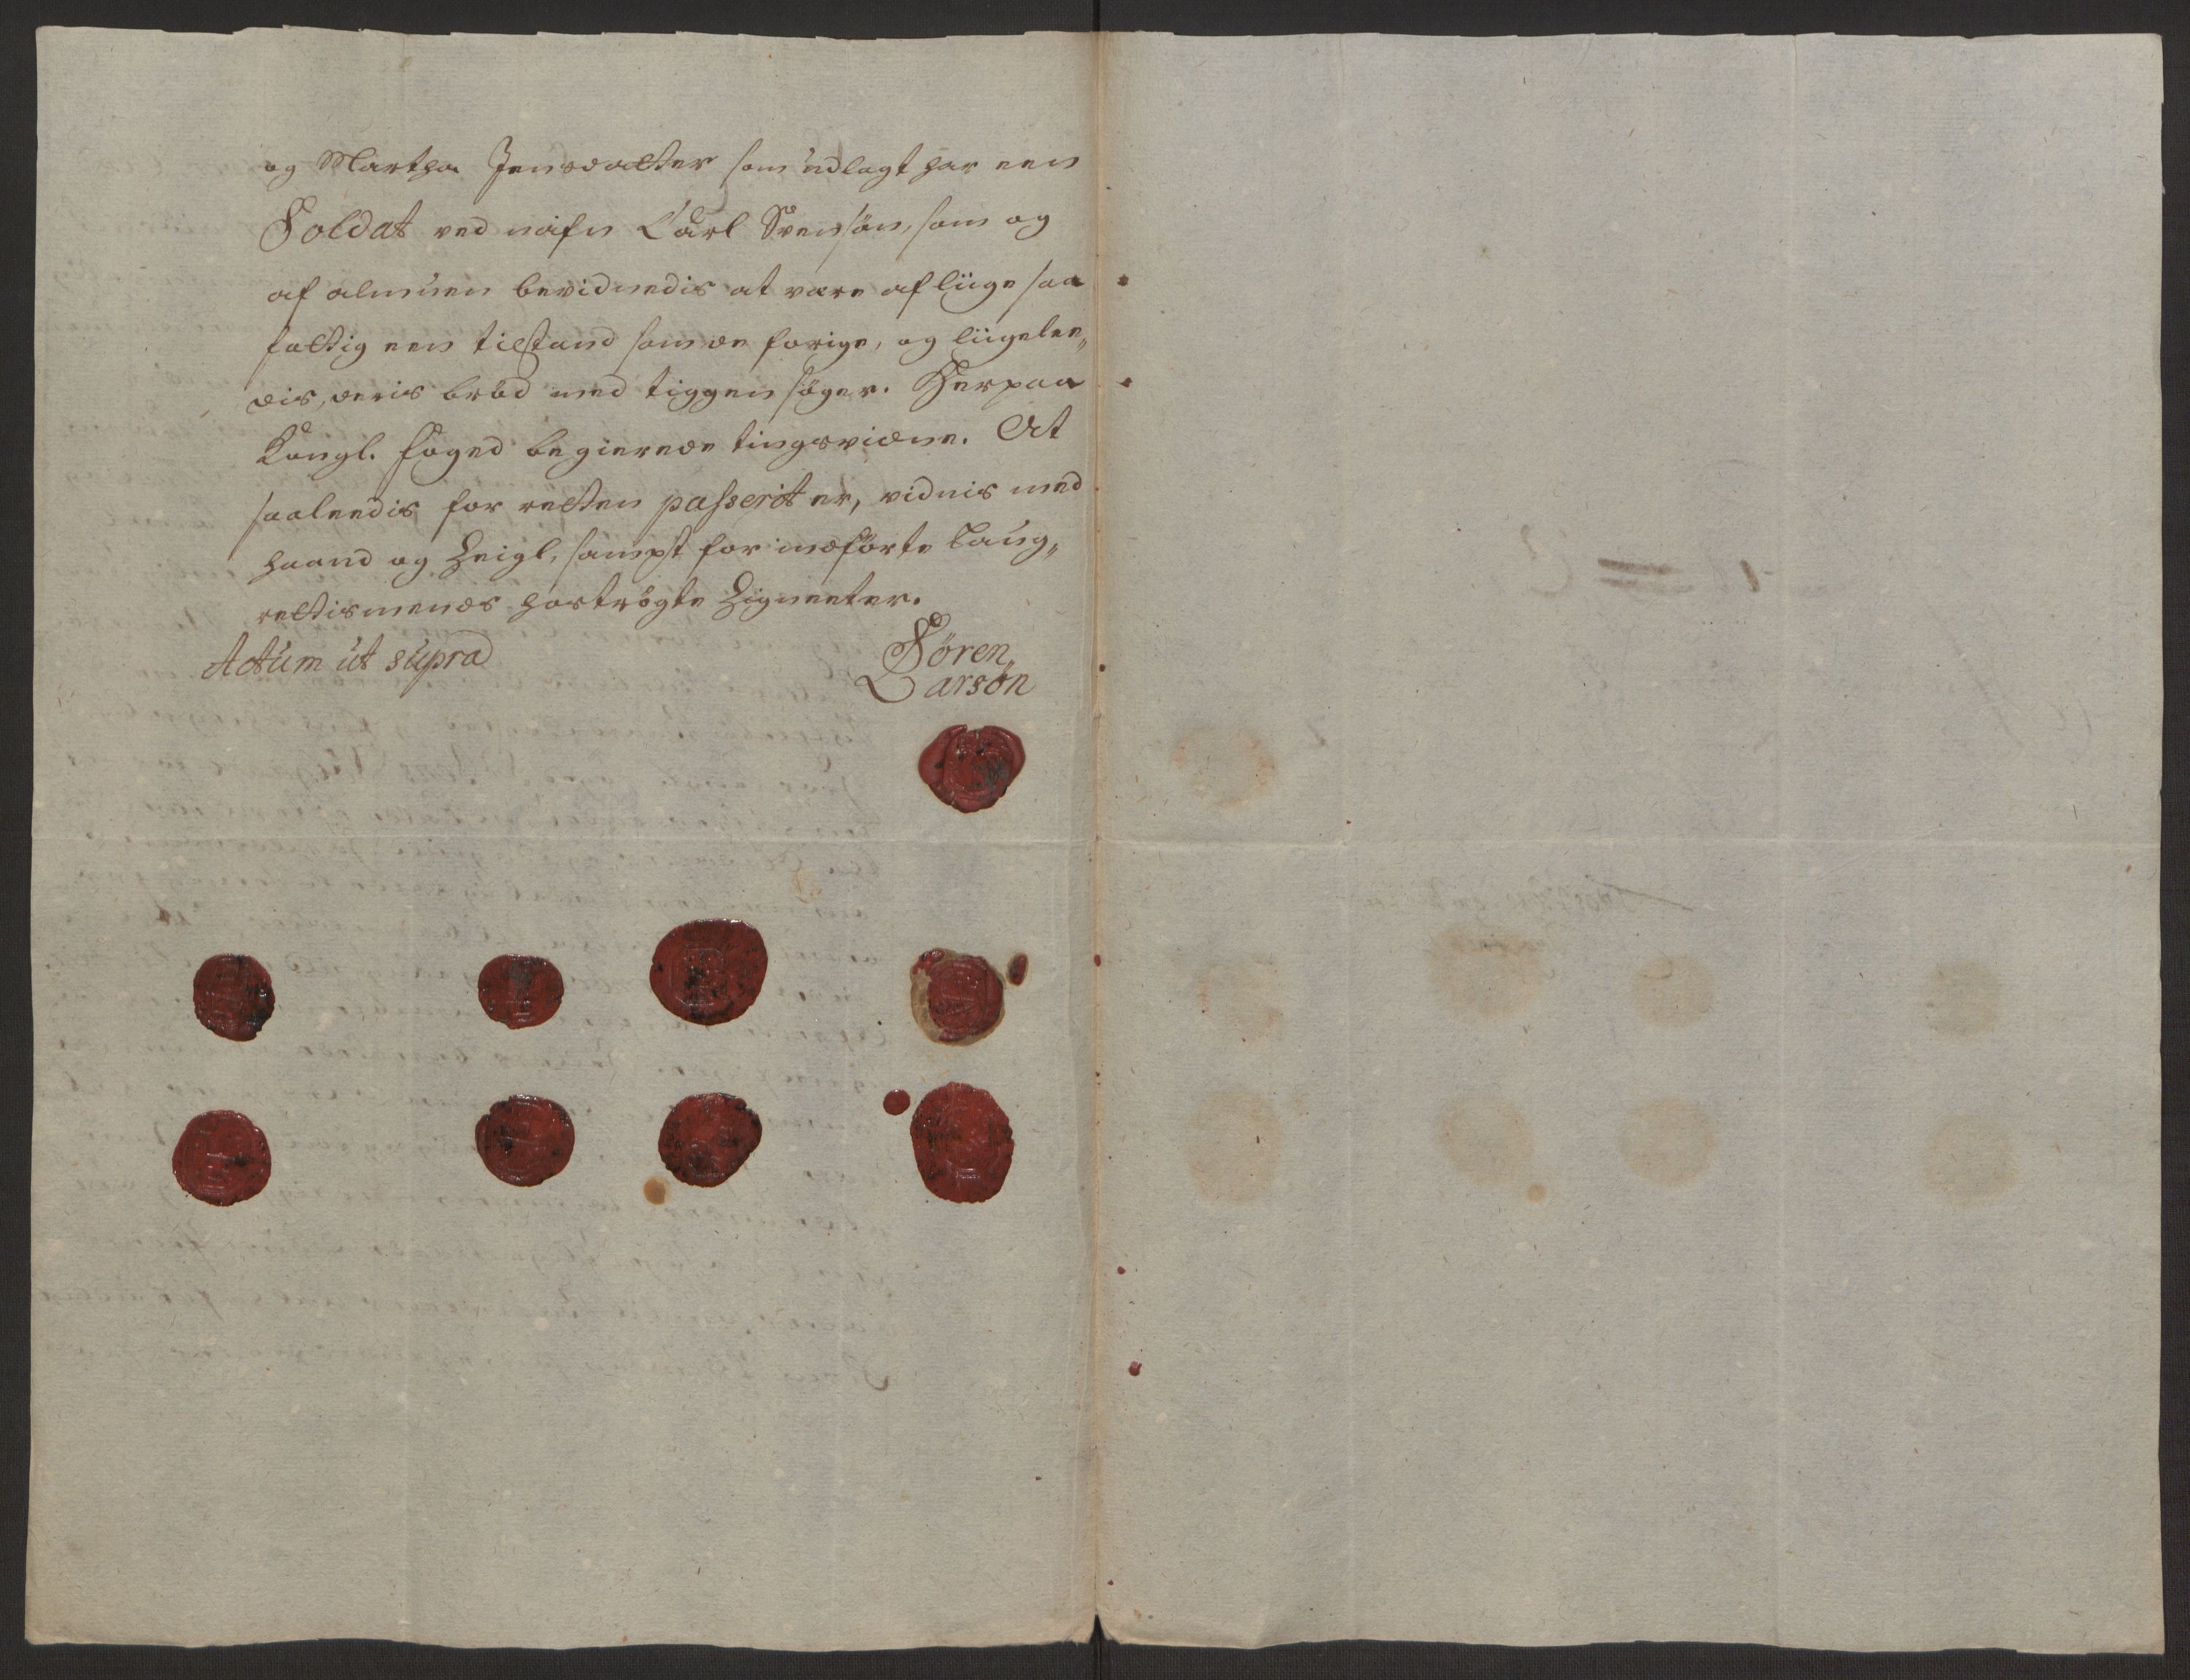 og Martha Jensdatter som udlagt har een
Soldat ved nafn Carl Svensøn, som og
af almuen bevidnedis at være af liige saa
fattig een tilstand som de forige, og liigelee„
dis, deris brød med tiggen søger. Herpaa
Kongl. foged begierede tingsvidne. At
saaleedis for retten passerit er, vidnis med
haand og Zeigl, sampt for indførte Laug„
rettismends hostrøgte Zigneeter.
Actum ut supra
Sören„
Larsøn